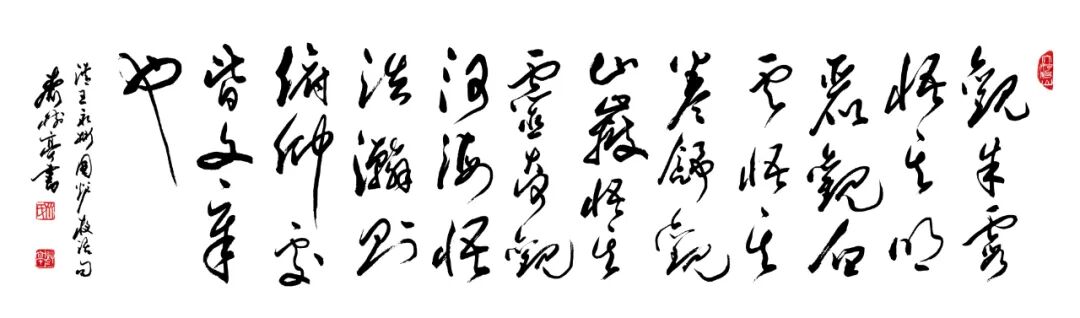 觀朱霞
悟其明
麗觀白
雲悟其
卷舒觀
山嶽悟其
靈奇觀
河海悟
浩瀚則
俯仰處
皆文章
也
清王永彬圍爐夜話句
樹亭書